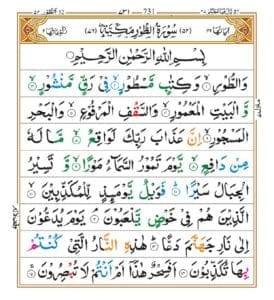 سُوْرَةُ الطُّوْرِ مَكِّيَّةٌ
بِسْمِ اللّٰهِ الرَّحْمٰنِ الرَّحِيْمِ
وَالطُّوْرِ ۙ وَكِتٰبٍ مَّسْطُوْرٍ ۙ فِيْ رَقٍّ مَّنْشُوْرٍ ۙ
وَّالْبَيْتِ الْمَعْمُوْرِ ۙ وَالسَّقْفِ الْمَرْفُوْعِ ۙ وَالْبَحْرِ
الْمَسْجُوْرِ ۙ اِنَّ عَذَابَ رَبِّكَ لَوَاقِعٌ ۙ مَّا لَهٗ
مِنْ دَافِعٍ ۙ يَّوْمَ تَمُوْرُ السَّمَآءُ مَوْرًا ۙ وَّتَسِيْرُ
الْجِبَالُ سَيْرًا ۗ فَوَيْلٌ يَّوْمَىِٕذٍ لِّلْمُكَذِّبِيْنَ ۙ
الَّذِيْنَ هُمْ فِيْ خَوْضٍ يَّلْعَبُوْنَ ۘ يَوْمَ يُدَعُّوْنَ
اِلٰى نَارِ جَهَنَّمَ دَعًّا ۗ هٰذِهِ النَّارُ الَّتِيْ كُنْتُمْ
بِهَا تُكَذِّبُوْنَ اَفَسِحْرٌ هٰذَآ اَمْ اَنْتُمْ لَا تُبْصِرُوْنَ